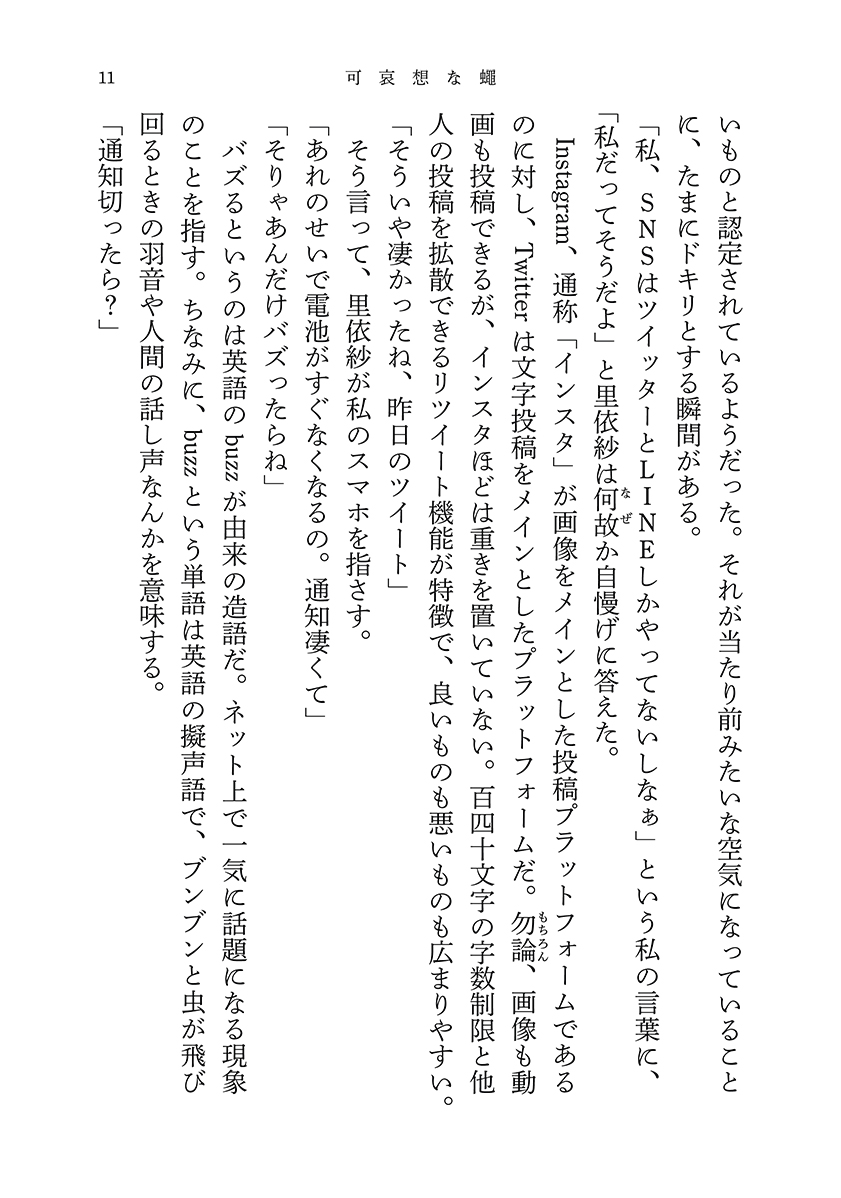 11
可哀想な蠅
いものと認定されているようだった。それが当たり前みたいな空気になっていること
に、たまにドキリとする瞬間がある。
「私、SNSはツイッターとLINEしかやってないしなぁ」という私の言葉に、
「私だってそうだよ」と里依紗は何故か自慢げに答えた。
なぜ
Instagram、通称「インスタ」が画像をメインとした投稿プラットフォームである
のに対し、Twitterは文字投稿をメインとしたプラットフォームだ。勿論、画像も動
もちろん
画も投稿できるが、インスタほどは重きを置いていない。百四十文字の字数制限と他
人の投稿を拡散できるリツイート機能が特徴で、良いものも悪いものも広まりやすい。
「そういや凄かったね、昨日のツイート」
そう言って、里依紗が私のスマホを指さす。
「あれのせいで電池がすぐなくなるの。通知凄くて」
「そりゃあんだけバズったらね」
バズるというのは英語のbuzzが由来の造語だ。ネット上で一気に話題になる現象
のことを指す。ちなみに、buzzという単語は英語の擬声語で、ブンブンと虫が飛び
回るときの羽音や人間の話し声なんかを意味する。
「通知切ったら?」